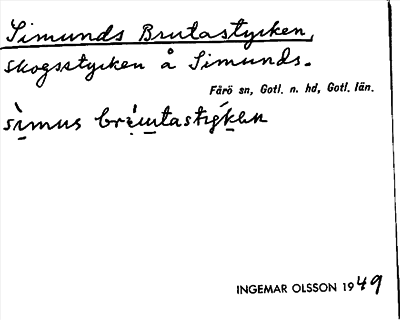 Simunds Brutastycken,
skogsstycken å Simunds.
Fårö sn, Gotl. n. hd, Gotl. län.
simus
INGEMAR OLSSON 1949